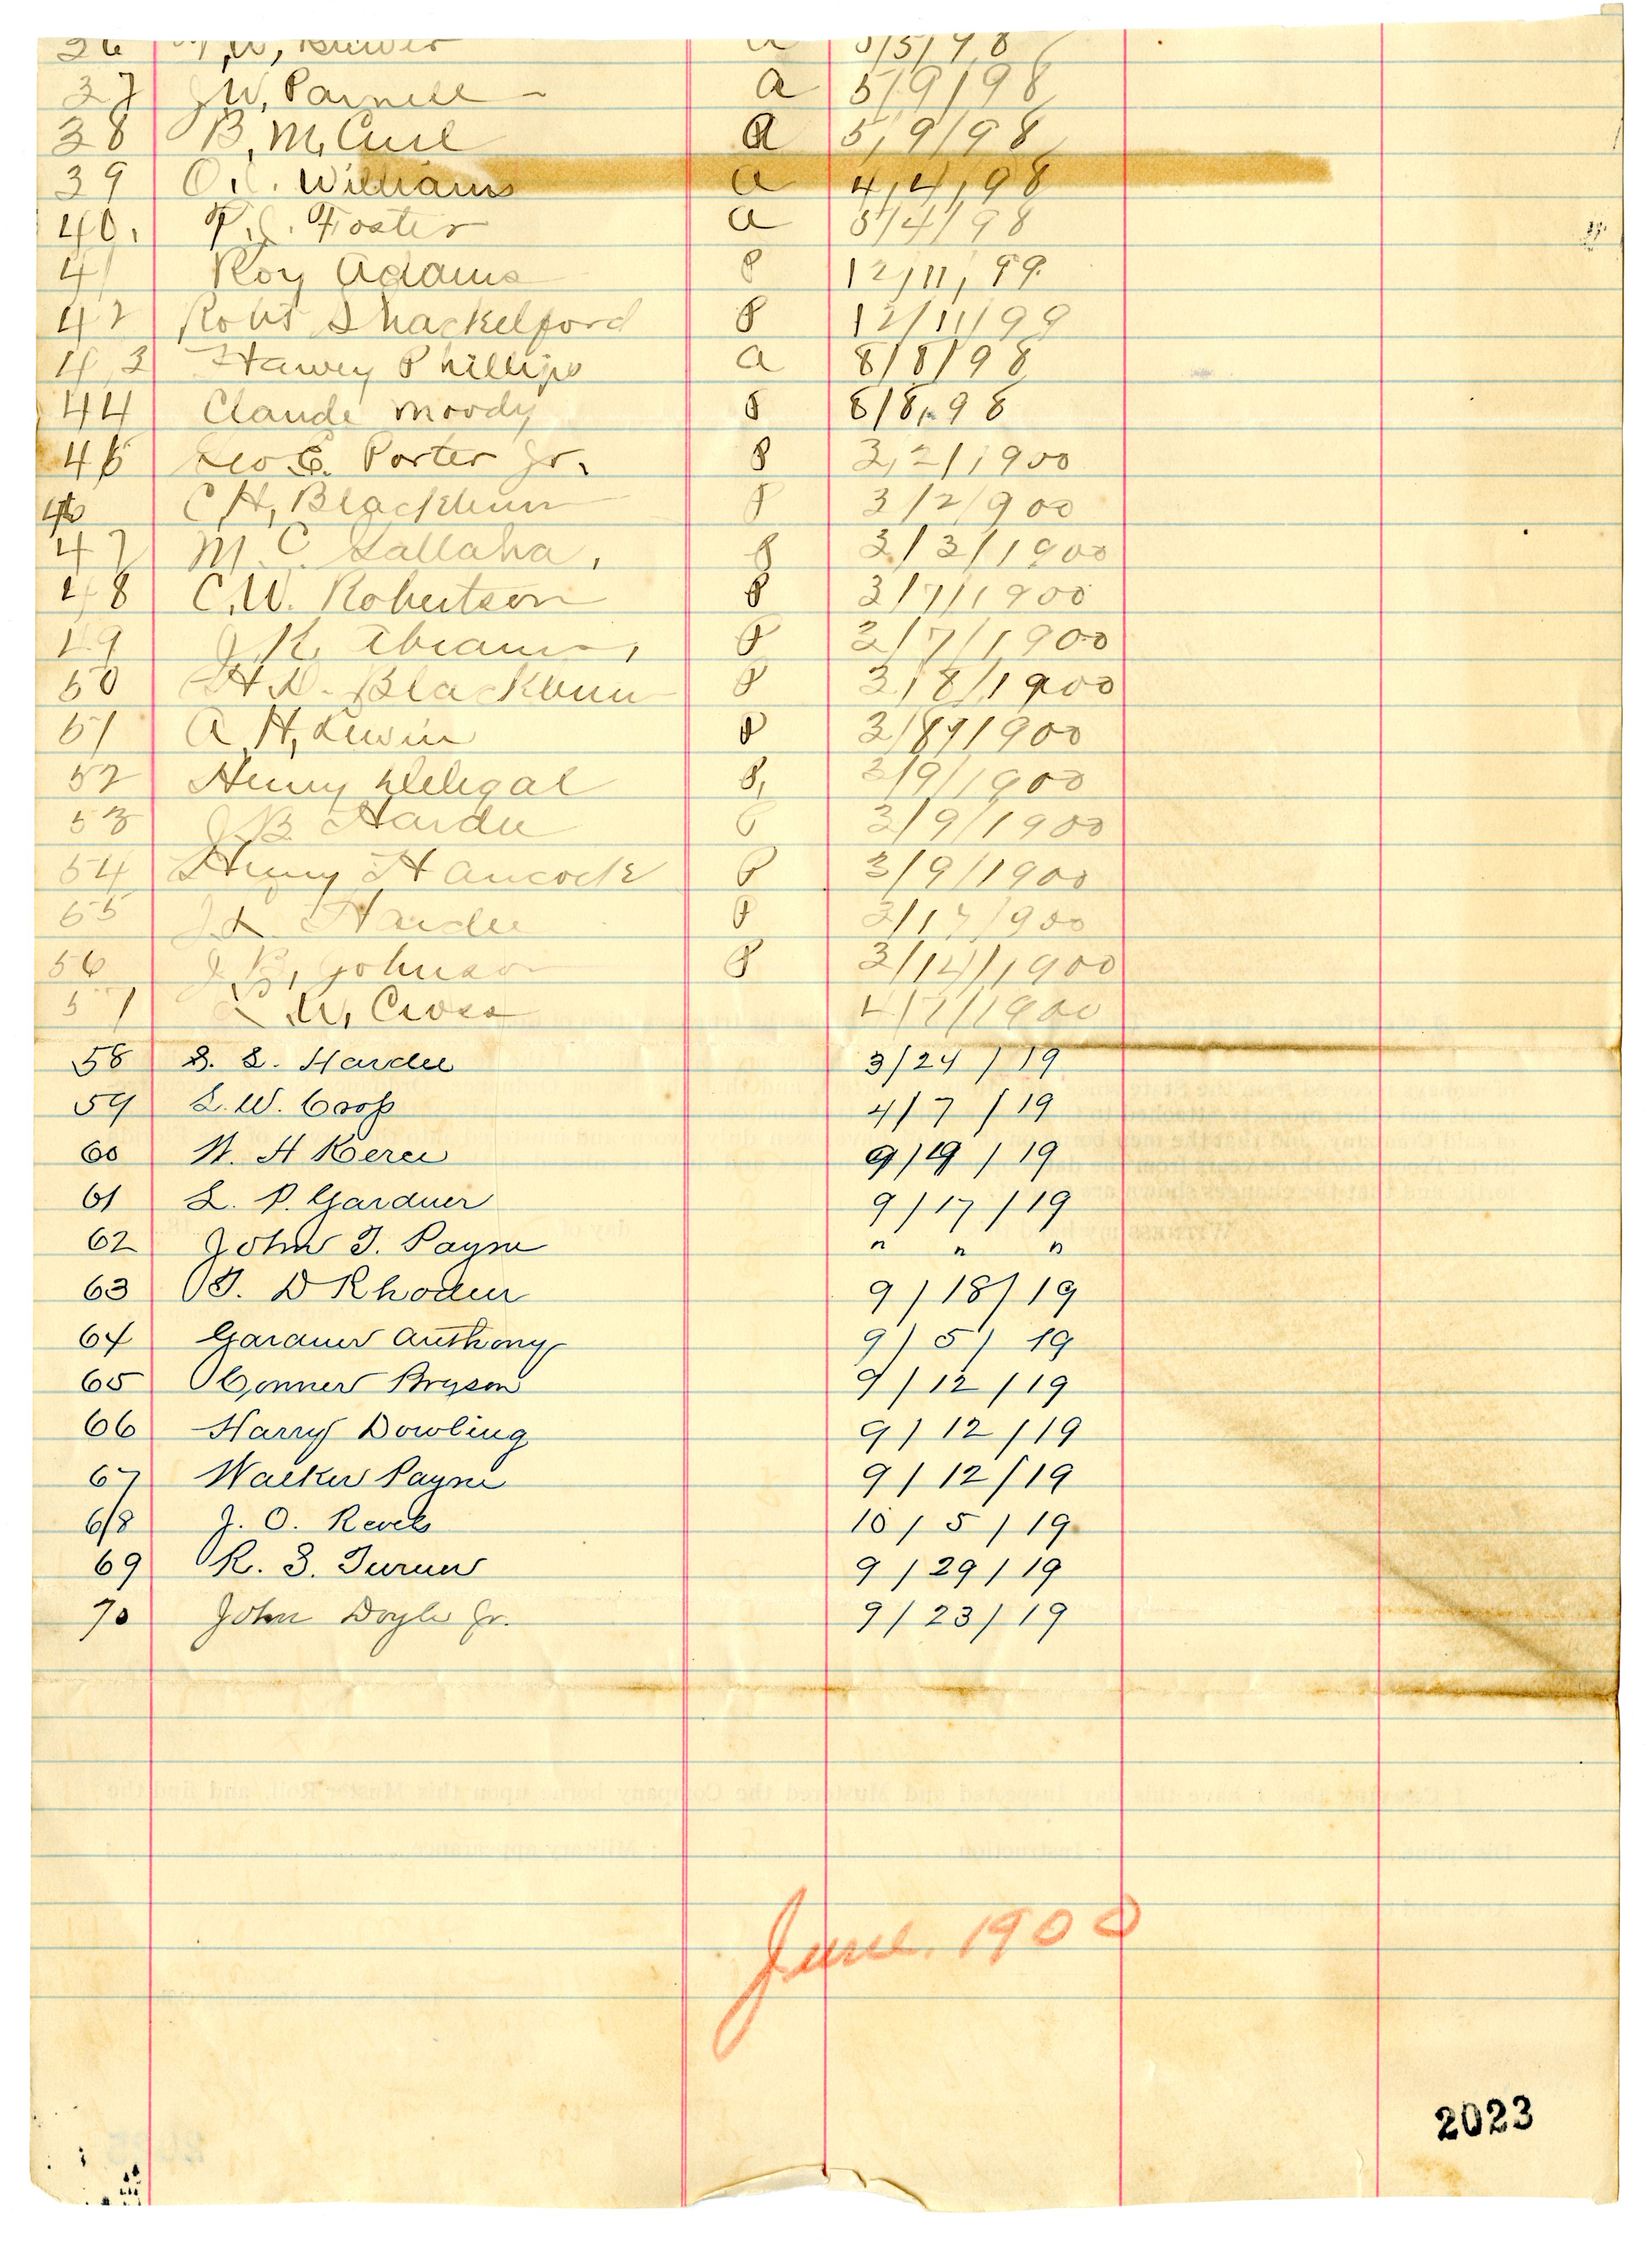 36 W, Brewer a 5/5/98
37 J W, Parnell a 5/9/98
38 B, M, Curl a 5/9/98
39 O. C. Williams a 4/4/98
40. P. J. Foster a 5/4/98
41 Roy Adams P 12/11/99
42 Robt Shackelford P 12/11/99
43 Harvey Phillips a 8/8/98
44 Claude Moody P 8/8/98
45 Geo C. Porter Jr. P 3/2/1900
46 C H, Blackburn P 3/2/900
47 M. C. Sallaha, P 3/3/1900
48 C. W. Robertson P 3/7/1900
49 J K Abrams, P 3/7/1900
50 H D. Blackburn P 3/8/1900
51 A H, Lewin P 3/8/1900
52 Henry Delegal P, 3/9/1900
53 J B Hardee P 3/9/1900
54 Henry Hancock P 3/9/1900
55 J L Hardee P 3/17/900
56 J B, Johnson P 3/14/1900
57 L. W, Cross 4/7/1900
58 S. L. Hardee 3/24/19
59 L. W. Coop 4/7/19
60 W. H 9/9/19
61 L. P. Gardner 9/17/19
62 John T. Payne " " "
63 T. D Rhoden 9/18/19
64 Gardner Anthony 9/5/19
65 Conner Bryson 9/12/19
66 Harry Dowling 9/12/19
67 Walker Payne 9/12/19
68 J. O. Revels 10/5/19
69 R. S. Turner 9/29/19
70 John Doyle Jr. 9/23/19
June. 1900
2023